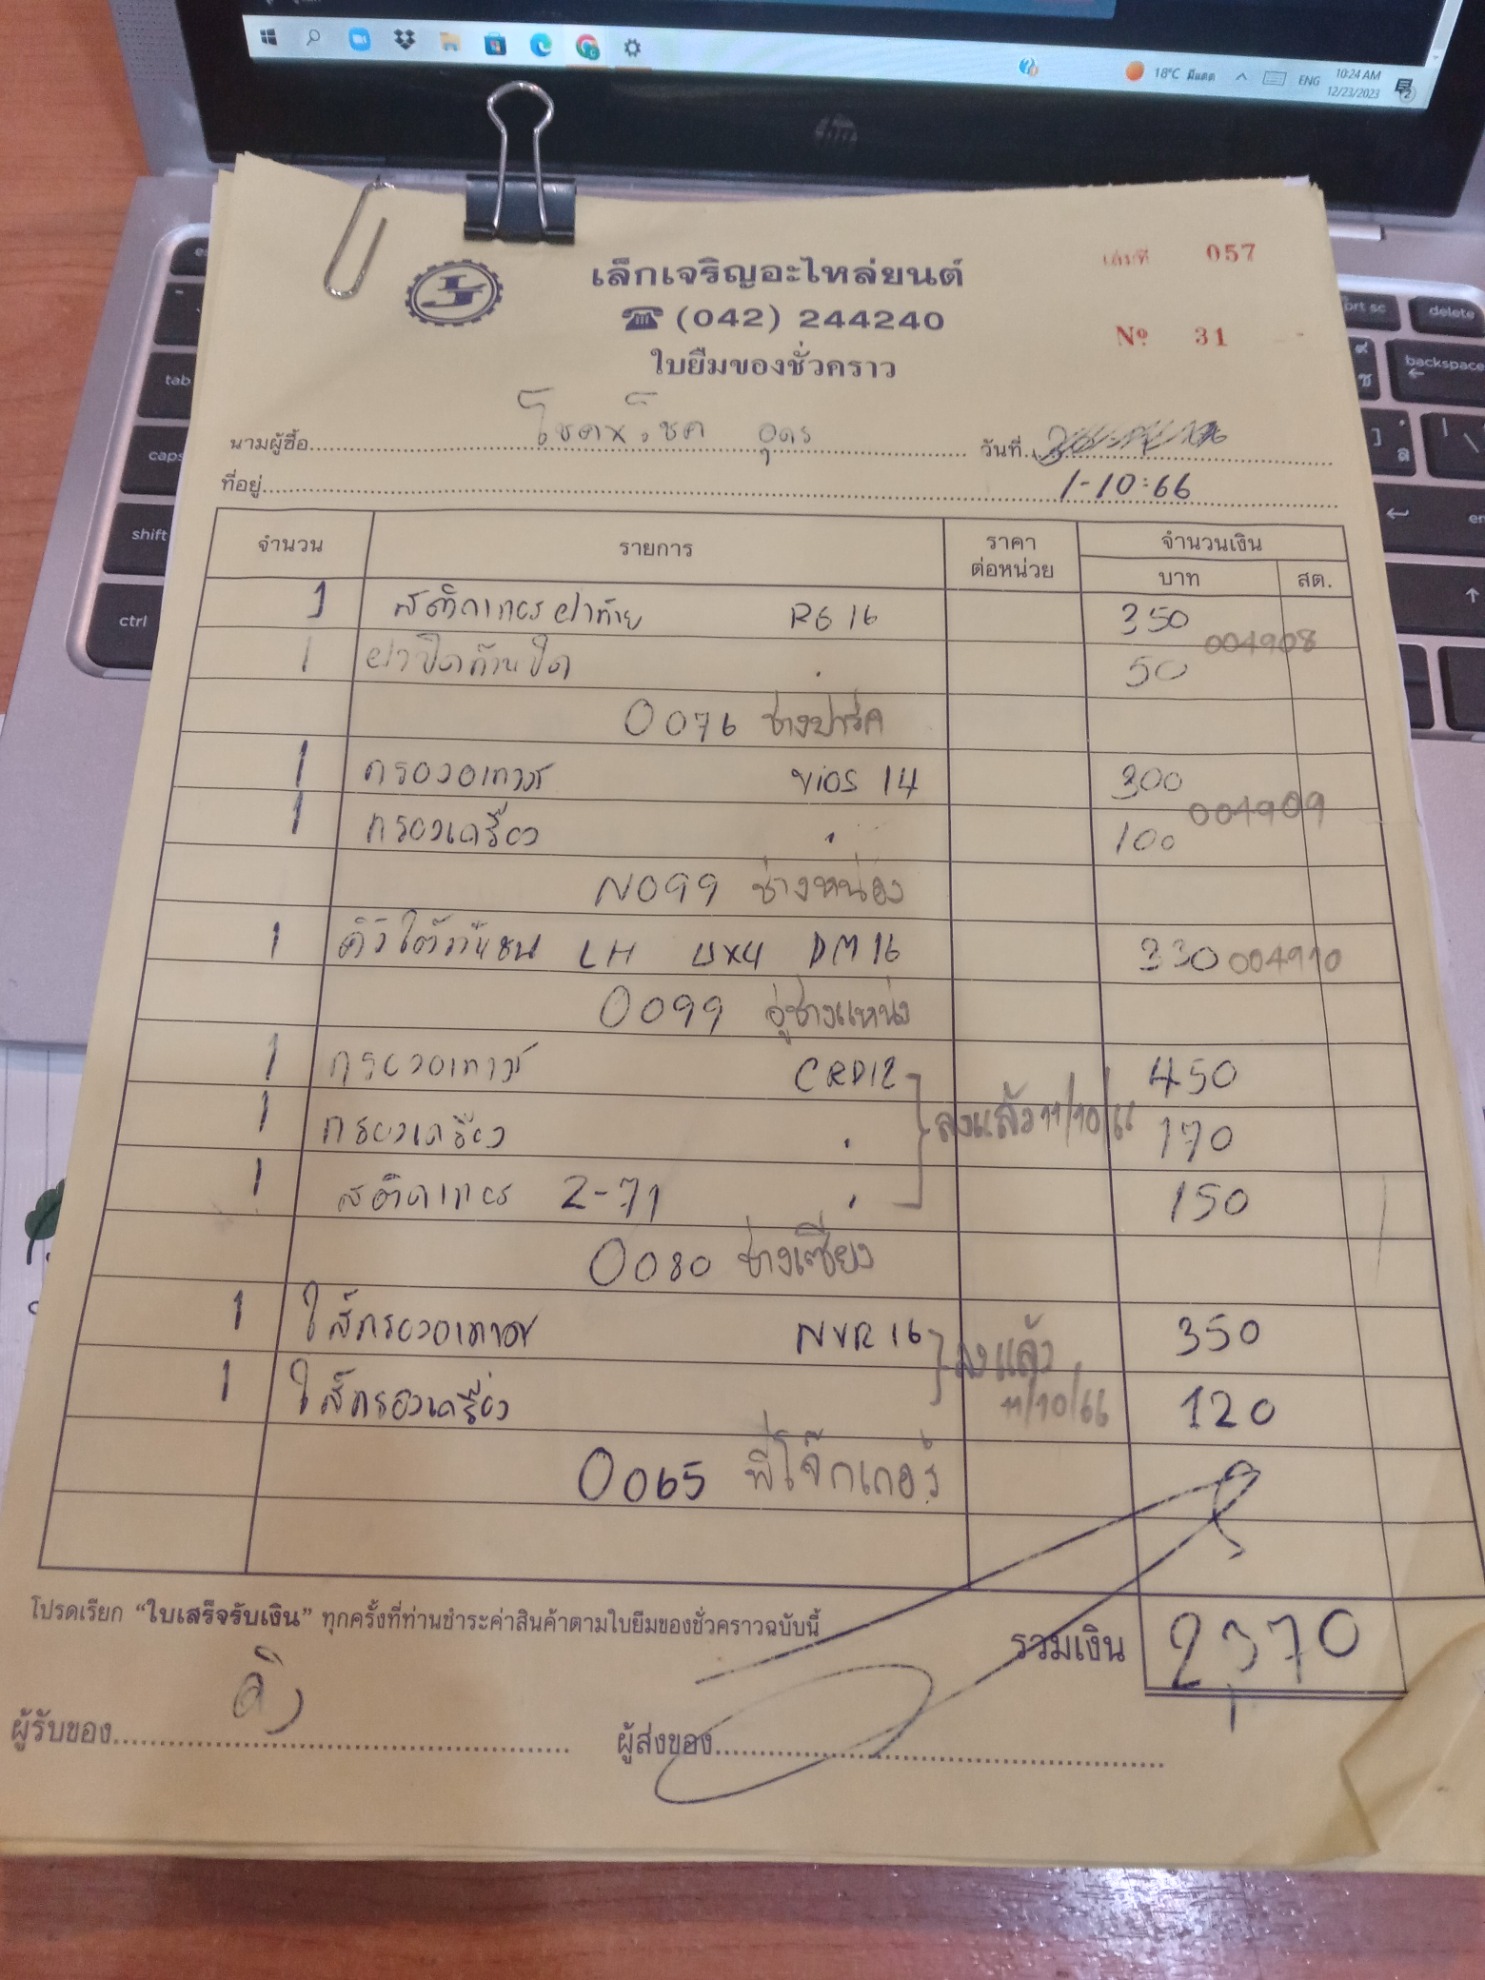 18°C มีแดด ENG 10:24 AM
12/23/2023
เล็กเจริญอะไหล่ยนต์
เล่มที่ 057
☎ (042) 244240
Nº 31
ใบยืมของชั่วคราว
นามผู้ซื้อ โชคxโชค อุดร วันที่
ที่อยู่ 1-10-66
จำนวน รายการ ราคาต่อหน่วย จำนวนเงิน
บาท สต.
1 สติกเกอร์ฝาท้าย RG 16 350
004908
1 ฝาปิดก้านปัด 50
0076 ช่างปาร์ค
1 กรองอากาศ vios 14 300
004909
1 กรองเครื่อง 100
N099 ช่างหน่อง
1 คิ้วใต้ LH 4x4 DM 16 330 004910
0099 อู่ช่างแหน่ง
1 กรองอากาศ CRD12 450
ลงแล้ว 11/10/66
1 กรองเครื่อง 170
1 สติกเกอร์ 2-71 150
0080 ช่างเซียง
1 ไส้กรองอากาศ NVR 16 350
ลงแล้ว
1 ไส้กรองเครื่อง 11/10/66 120
0065 พี่โจ๊กเกอร์
โปรดเรียก “ใบเสร็จรับเงิน” ทุกครั้งที่ท่านชำระค่าสินค้าตามใบยืมของชั่วคราวฉบับนี้
รวมเงิน 2370
ผู้รับของ ผู้ส่งของ
tab
caps
shift
ctrl
delete
backspace